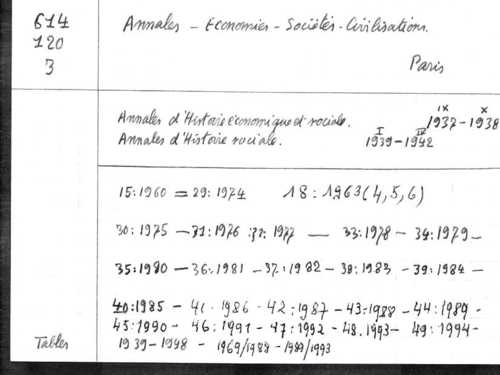 614
120
3
Annales - Economies - Sociétés - Civilisations.
Paris
Annales d'Histoire économique et sociale. IX 1937 - X 1938
Annales d'Histoire sociale. I 1939 - IV 1942
15:1960 = 29:1974 18:1963(4,5,6)
30:1975 - 31:1976 32:1977 - 33:1978 - 34:1979 -
35:1980 - 36:1981 - 37:1982 - 38:1983 - 39:1984 -
40:1985 - 41.1986 - 42:1987 - 43:1988 - 44:1989 -
45:1990 - 46:1991 - 47:1992 - 48.1993 - 49:1994 -
Tables 1939-1948 - 1969/1988 - 1989/1993